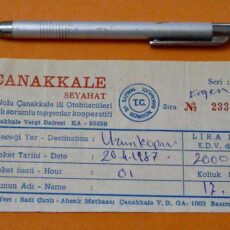 ÇANAKKALE Seri :
SEYAHAT
Nolu Çanakkale ili Otobüscüleri
sorumlu taşıyıcılar kooperatifi T.C. Sıra № 233
akkale Vergi Dairesi KA - 65259
eceği Yer - Destination : Uzunköprü LİRA
ket Tarihi - Date : 20.4.1987 K.D.V. d
2000
ket Saati - Hour : 01 Koltuk
unun Adı - Name : 17.
Yeri : Sadi Canlı - Ahenk Matbaası Çanakkale V. D. GA- 1003 Basım